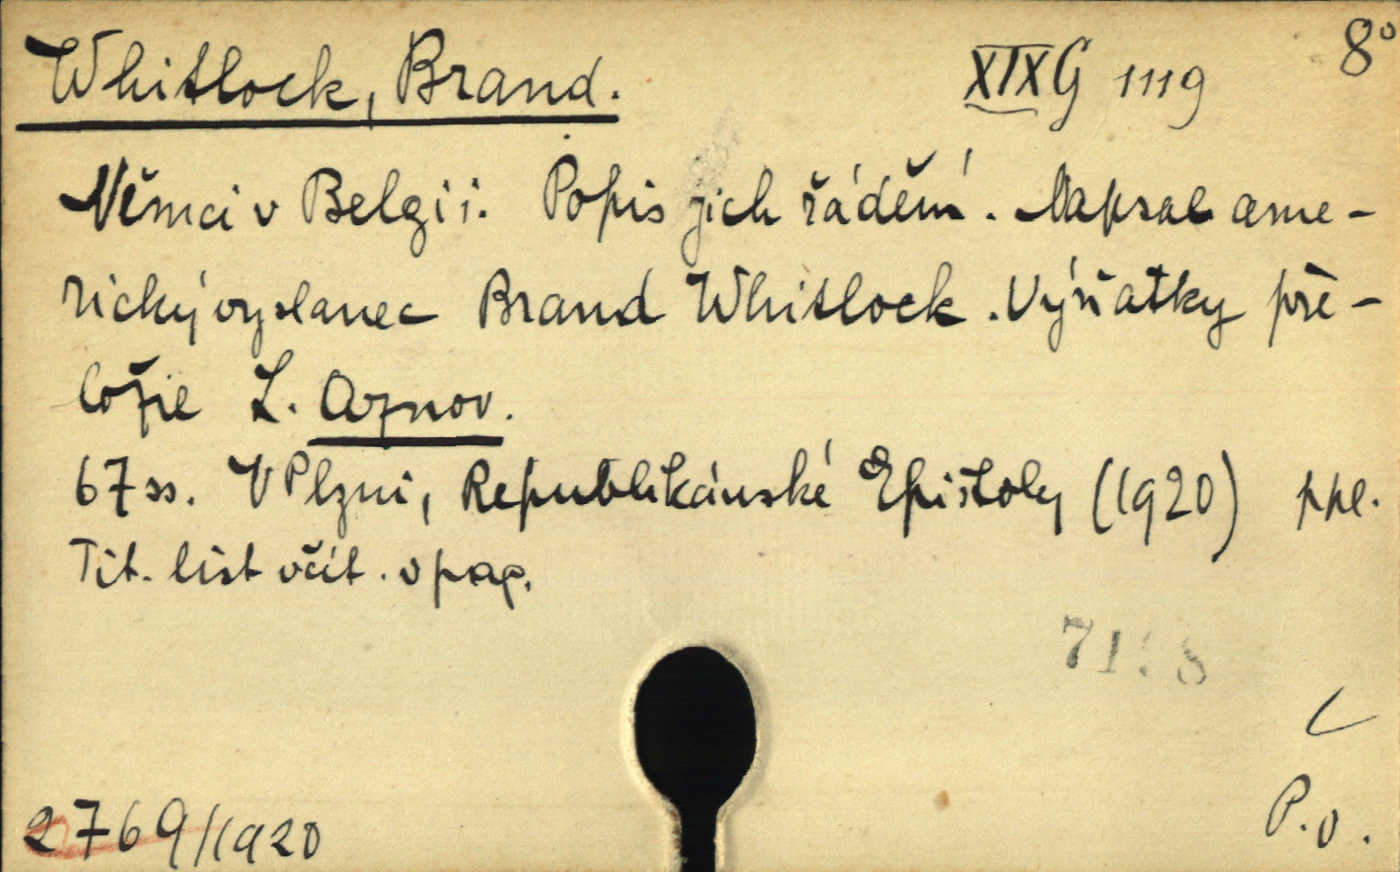 Whitlock, Brand. XIX G 1119 8°
Němci v Belgii. Popis jich řádění. Napsal ame-
rický vyslanec Brand Whitlock. Výňatky pře-
ložil L. Aznov.
67 ss. V Plzni, Republikánské Epištoly (1920) ppl.
Tit. list včít. v pag.
P. v.
2769/1920